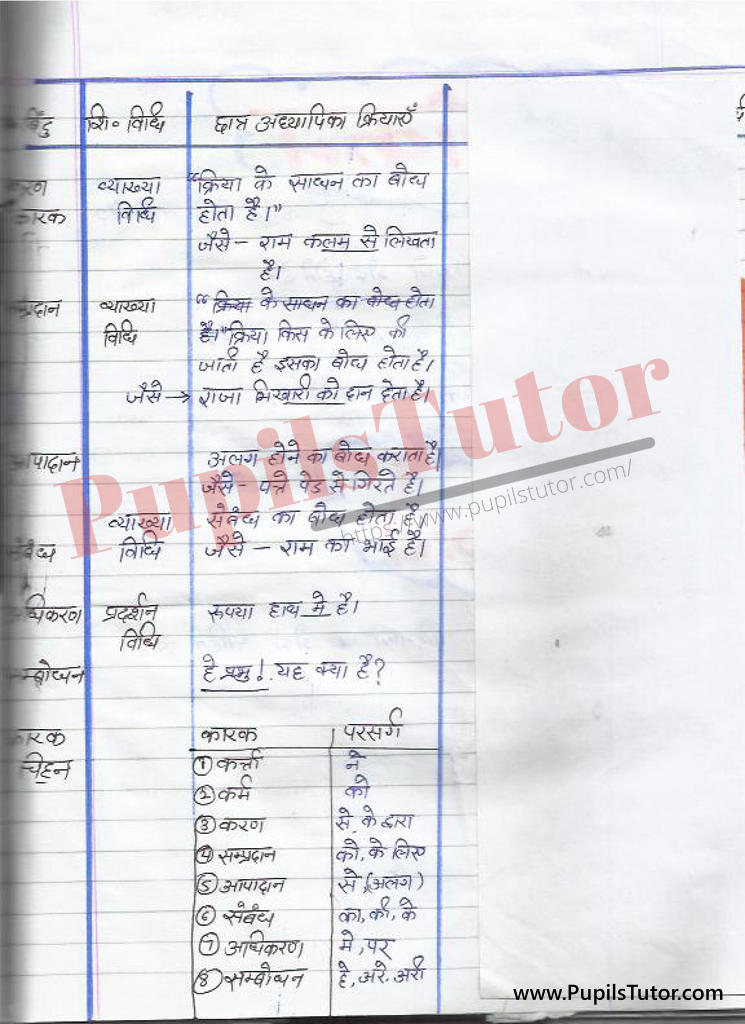 बिंदु शि॰ विधि छात्र अध्यापिका क्रियाएँ
करण व्याख्या "क्रिया के साधन का बोध
कारक विधि होता है।"
जैसे - राम कलम से लिखता
है।
सम्प्रदान व्याख्या "क्रिया के साधन का बोध होता
विधि है।" क्रिया किस के लिए की
जाती है इसका बोध होता है।
जैसे → राजा भिखारी को दान देता है।
आपादान अलग होने का बोध कराता है।
जैसे - पत्ते पेड से गिरते है।
व्याख्या संबंध का बोध होता है।
संबंध विधि जैसे - राम का भाई है।
अधिकरण प्रदर्शन रूपया हाथ मे है।
विधि
सम्बोधन हे प्रभु! यह क्या है?
कारक कारक परसर्ग
चिह्न ① कर्त्ता ने
② कर्म को
③ करण से, के द्वारा
④ सम्प्रदान को, के लिए
⑤ आपादान से (अलग)
⑥ संबंध का, की, के
⑦ अधिकरण मे, पर
⑧ सम्बोधन हे, अरे, अरी
PupilsTutor
https://www.pupilstutor.com/
www.PupilsTutor.com